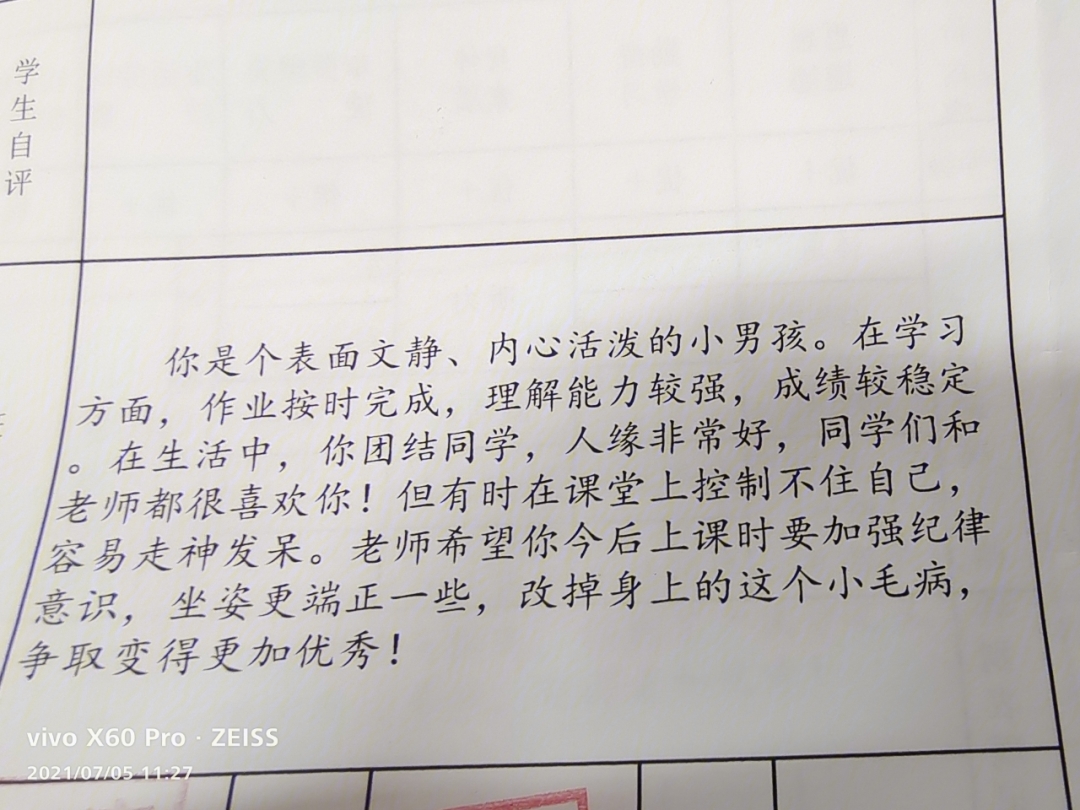 学
生
自
评
你是个表面文静、内心活泼的小男孩。在学习
方面，作业按时完成，理解能力较强，成绩较稳定
。在生活中，你团结同学，人缘非常好，同学们和
老师都很喜欢你！但有时在课堂上控制不住自己，
容易走神发呆。老师希望你今后上课时要加强纪律
意识，坐姿更端正一些，改掉身上的这个小毛病，
争取变得更加优秀！
vivo X60 Pro · ZEISS
2021/07/05 11:27